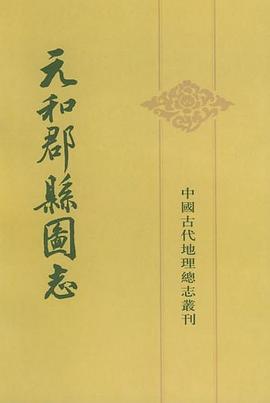 元和郡縣圖志
中國古代地理總志叢刊